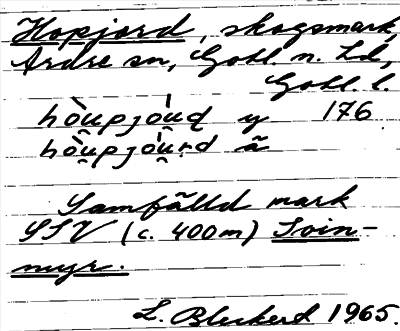 Hopjord, skogsmark,
Ardre sn, Gotl. n. hd,
Gotl. l.
hòu̯pjòu̯ḍ y 176
hòu̯pjòu̯ṛd ä
Samfälld mark
SSV (c. 400m) Svin-
myr.
L. Bleckert 1965.